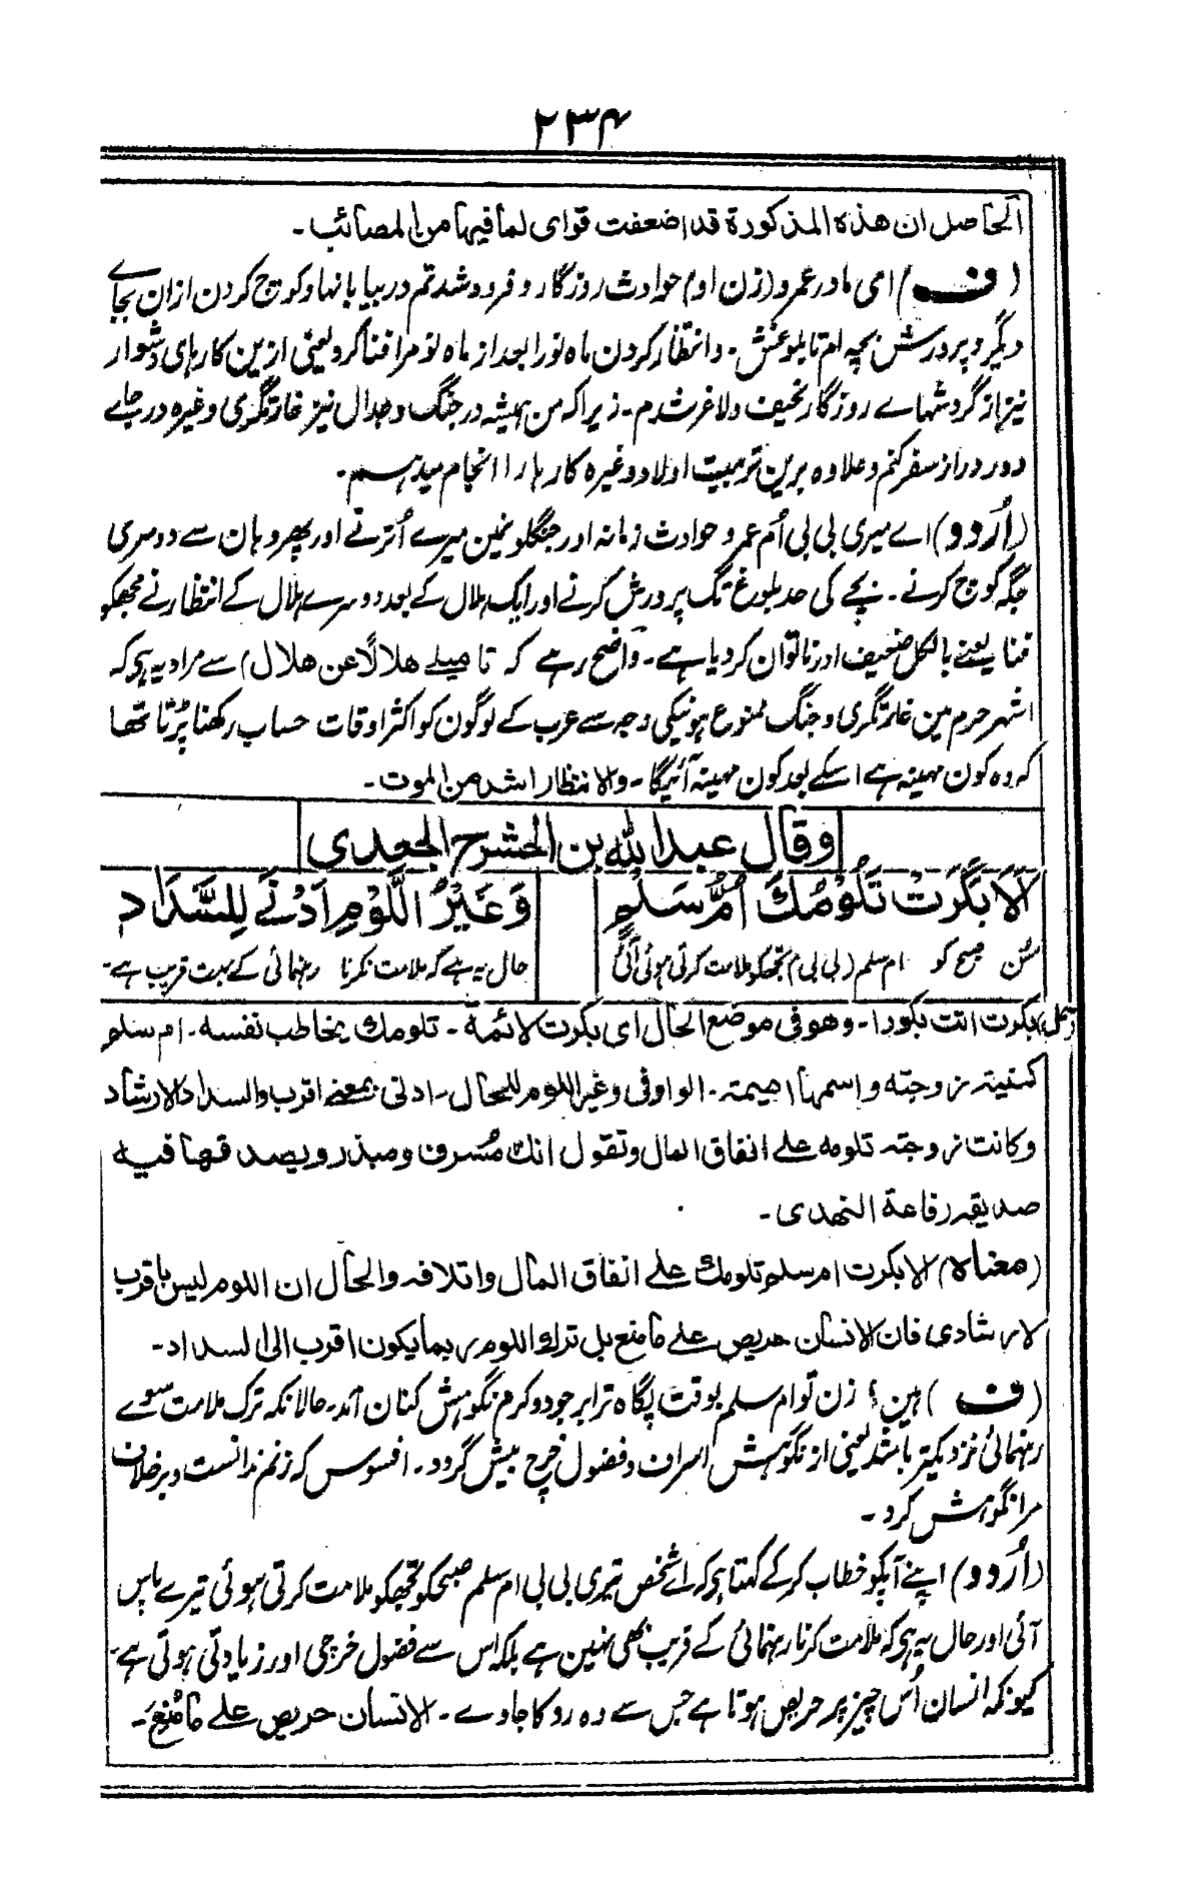 ۲۳۴
الحاصل ان هذه المذكورة قد اضعفت قوای لما فيها من المصائب ۔
(ف) ای مادر عمرو (زن او) حوادث روزگار و فرود شدنم در بیابانها و کوچ کردن ازان بجاے
دیگر و پرورش بچہ ام تا بلوغش ۔ وانتظار کردن ماہ نو را بعد از ماہ نو مرا فنا کرد یعنی ازین کارہای دشوار
نیز از گردشہاے روزگار نحیف و لاغر شدم ۔ زیرا کہ من ہمیشہ در جنگ و جدال نیز غارتگری وغیرہ در جاے
دور دراز سفر کنم و علاوہ برین تربیت اولاد وغیرہ کارہا را انجام میدہم ۔
(اُردو) اے میری بی بی اُم عمرو حوادث زمانہ اور جنگلونمین میرے اُترنے اور پھر وہان سے دوسری
جگہ کوچ کرنے ۔ بچے کی حد بلوغ تک پرورش کرنے اور ایک ہلال کے بعد دوسرے ہلال کے انتظار نے مجھکو
فنا یعنے بالکل ضعیف اور ناتوان کر دیا ہے ۔ واضح رہے کہ تاميلے هلالًا عن هلال) سے مراد یہ ہی کہ
اشہر حرم مین غارتگری و جنگ ممنوع ہونیکی وجہ سے عرب کے لوگون کو اکثر اوقات حساب رکھنا پڑتا تھا
کہ وہ کون مہینہ ہے اسکے بعد کون مہینہ آئیگا ۔ والانتظار اشد من الموت ۔
وقال عبد الله بن الحشرج الجعدی
اَلَا بَكَرَتْ تَلُوْمُكَ اُمُّ سَلْمٍ وَغَيْرُ اللَّوْمِ اَدْنٰے لِلسَّدَادِ
سُن صبح کو ام سلم (بی بی م) تجھکو ملامت کرتی ہوئی آئی حال یہ ہے کہ ملامت نکرنا رہنمائی کے بہت قریب ہے ۔
بكرت اتت بكورا ۔ وهو فی موضع الحال ای بكرت لائمة ۔ تلومك يخاطب نفسه ۔ ام سلم
كنية زوجته واسمها اميمة ۔ الواو فی وغير اللوم للحال ۔ ادنی بمعنے اقرب والسداد الارشاد
وكانت زوجته تلومه علے انفاق المال وتقول انك مُسرف ومبذر ويصدقها فيه
صديقه رفاعة النهدی ۔
(معناه) الا بكرت ام سلم تلومك علے انفاق المال واتلافه والحال ان اللوم ليس باقرب
لارشادی فان الانسان حريص علے ما منع بل ترك اللوم ربما يكون اقرب الی السداد ۔
(ف) ہین؛ زن تو ام سلم بوقت پگاہ ترا بر جود و کرم نکوہش کنان آمد ۔ حالانکہ ترک ملامت سوے
رہنمائی نزدیکتر باشد یعنی از نکوہش اسراف و فضول خرچ بیش گردد ۔ افسوس کہ زنم ندانست و برخلاف
مرا نکوہش کرد ۔
(اُردو) اپنے آپکو خطاب کرکے کہتا ہی کہ اے شخص تیری بی بی ام سلم صبحکو تجھکو ملامت کرتی ہوئی تیرے پاس
آئی اور حال یہ ہی کہ ملامت کرنا رہنمائی کے قریب بھی نہین ہے بلکہ اس سے فضول خرچی اور زیادتی ہوتی ہے ۔
کیونکہ انسان اُس چیز پر حریص ہوتا ہے جس سے وہ روکا جاوے ۔ الانسان حريص علے ما مُنِعَ ۔